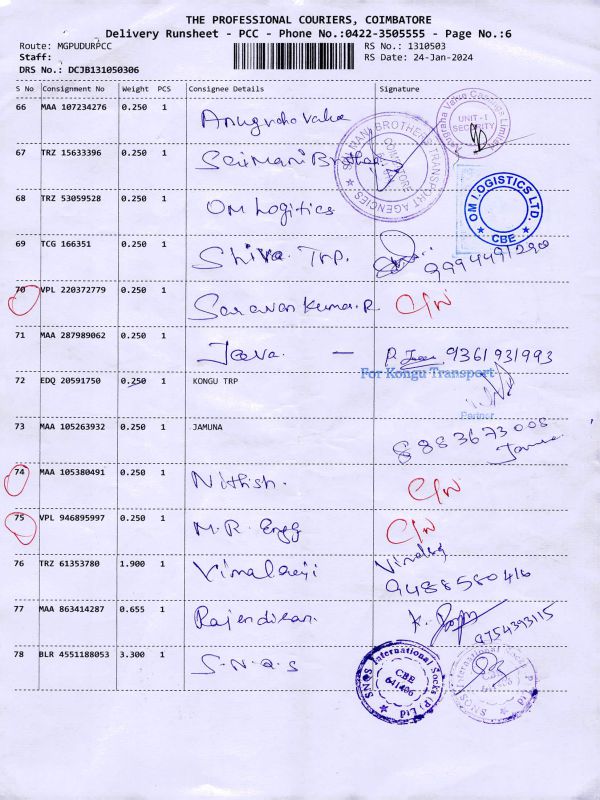 THE PROFESSIONAL COURIERS, COIMBATORE
Delivery Runsheet - PCC - Phone No.:0422-3505555 - Page No.:6
Route: MGPUDURPCC RS No.: 1310503
Staff: RS Date: 24-Jan-2024
DRS No.: DCJB131050306
S No Consignment No Weight PCS Consignee Details Signature
66 MAA 107234276 0.250 1 Anugraha Valve
Anugraha Valve Castings Limited
UNIT-I
SECURITY
67 TRZ 15633396 0.250 1 Sri Mani Brothers
SRI MANI BROTHERS TRANSPORT AGENCIES
COIMBATORE
68 TRZ 53059528 0.250 1 OM Logitics
OM LOGISTICS LTD.
CBE
69 TCG 166351 0.250 1 Shiva. Trp. 9994491290
70 VPL 220372779 0.250 1 Saravan Kumar. R C/N
71 MAA 287989062 0.250 1 Jeeva. — P. Jeeva 9361931993
72 EDQ 20591750 0.250 1 KONGU TRP
For Kongu Transport
Partner
73 MAA 105263932 0.250 1 JAMUNA 8883673008
74 MAA 105380491 0.250 1 Nithish. C/N
75 VPL 946895997 0.250 1 M.R. Engg C/N
76 TRZ 61353780 1.900 1 Vimalaeji 9488580416
77 MAA 863414287 0.655 1 Rajendiran. 9754393115
78 BLR 4551188053 3.300 1 S.N.Q.S
SNQS International Socks (P) Ltd
CBE
641406
SNQS International Socks (P) Ltd